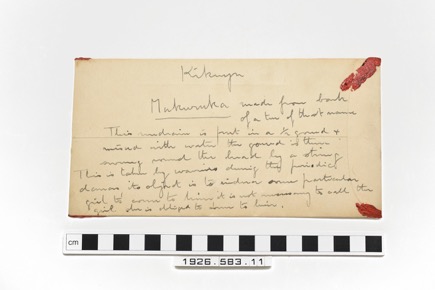 Kikuyu
Mukuruka made from bark
of a tree of that name
This medicine is put in a ½ gourd &
mixed with water the gourd is then
swung round the head by a string
This is taken by warriors during the periodic
dances its object is to induce some particular
girl to come to him it is not necessary to call the
girl she is obliged to come to him.
cm
1926.583.11